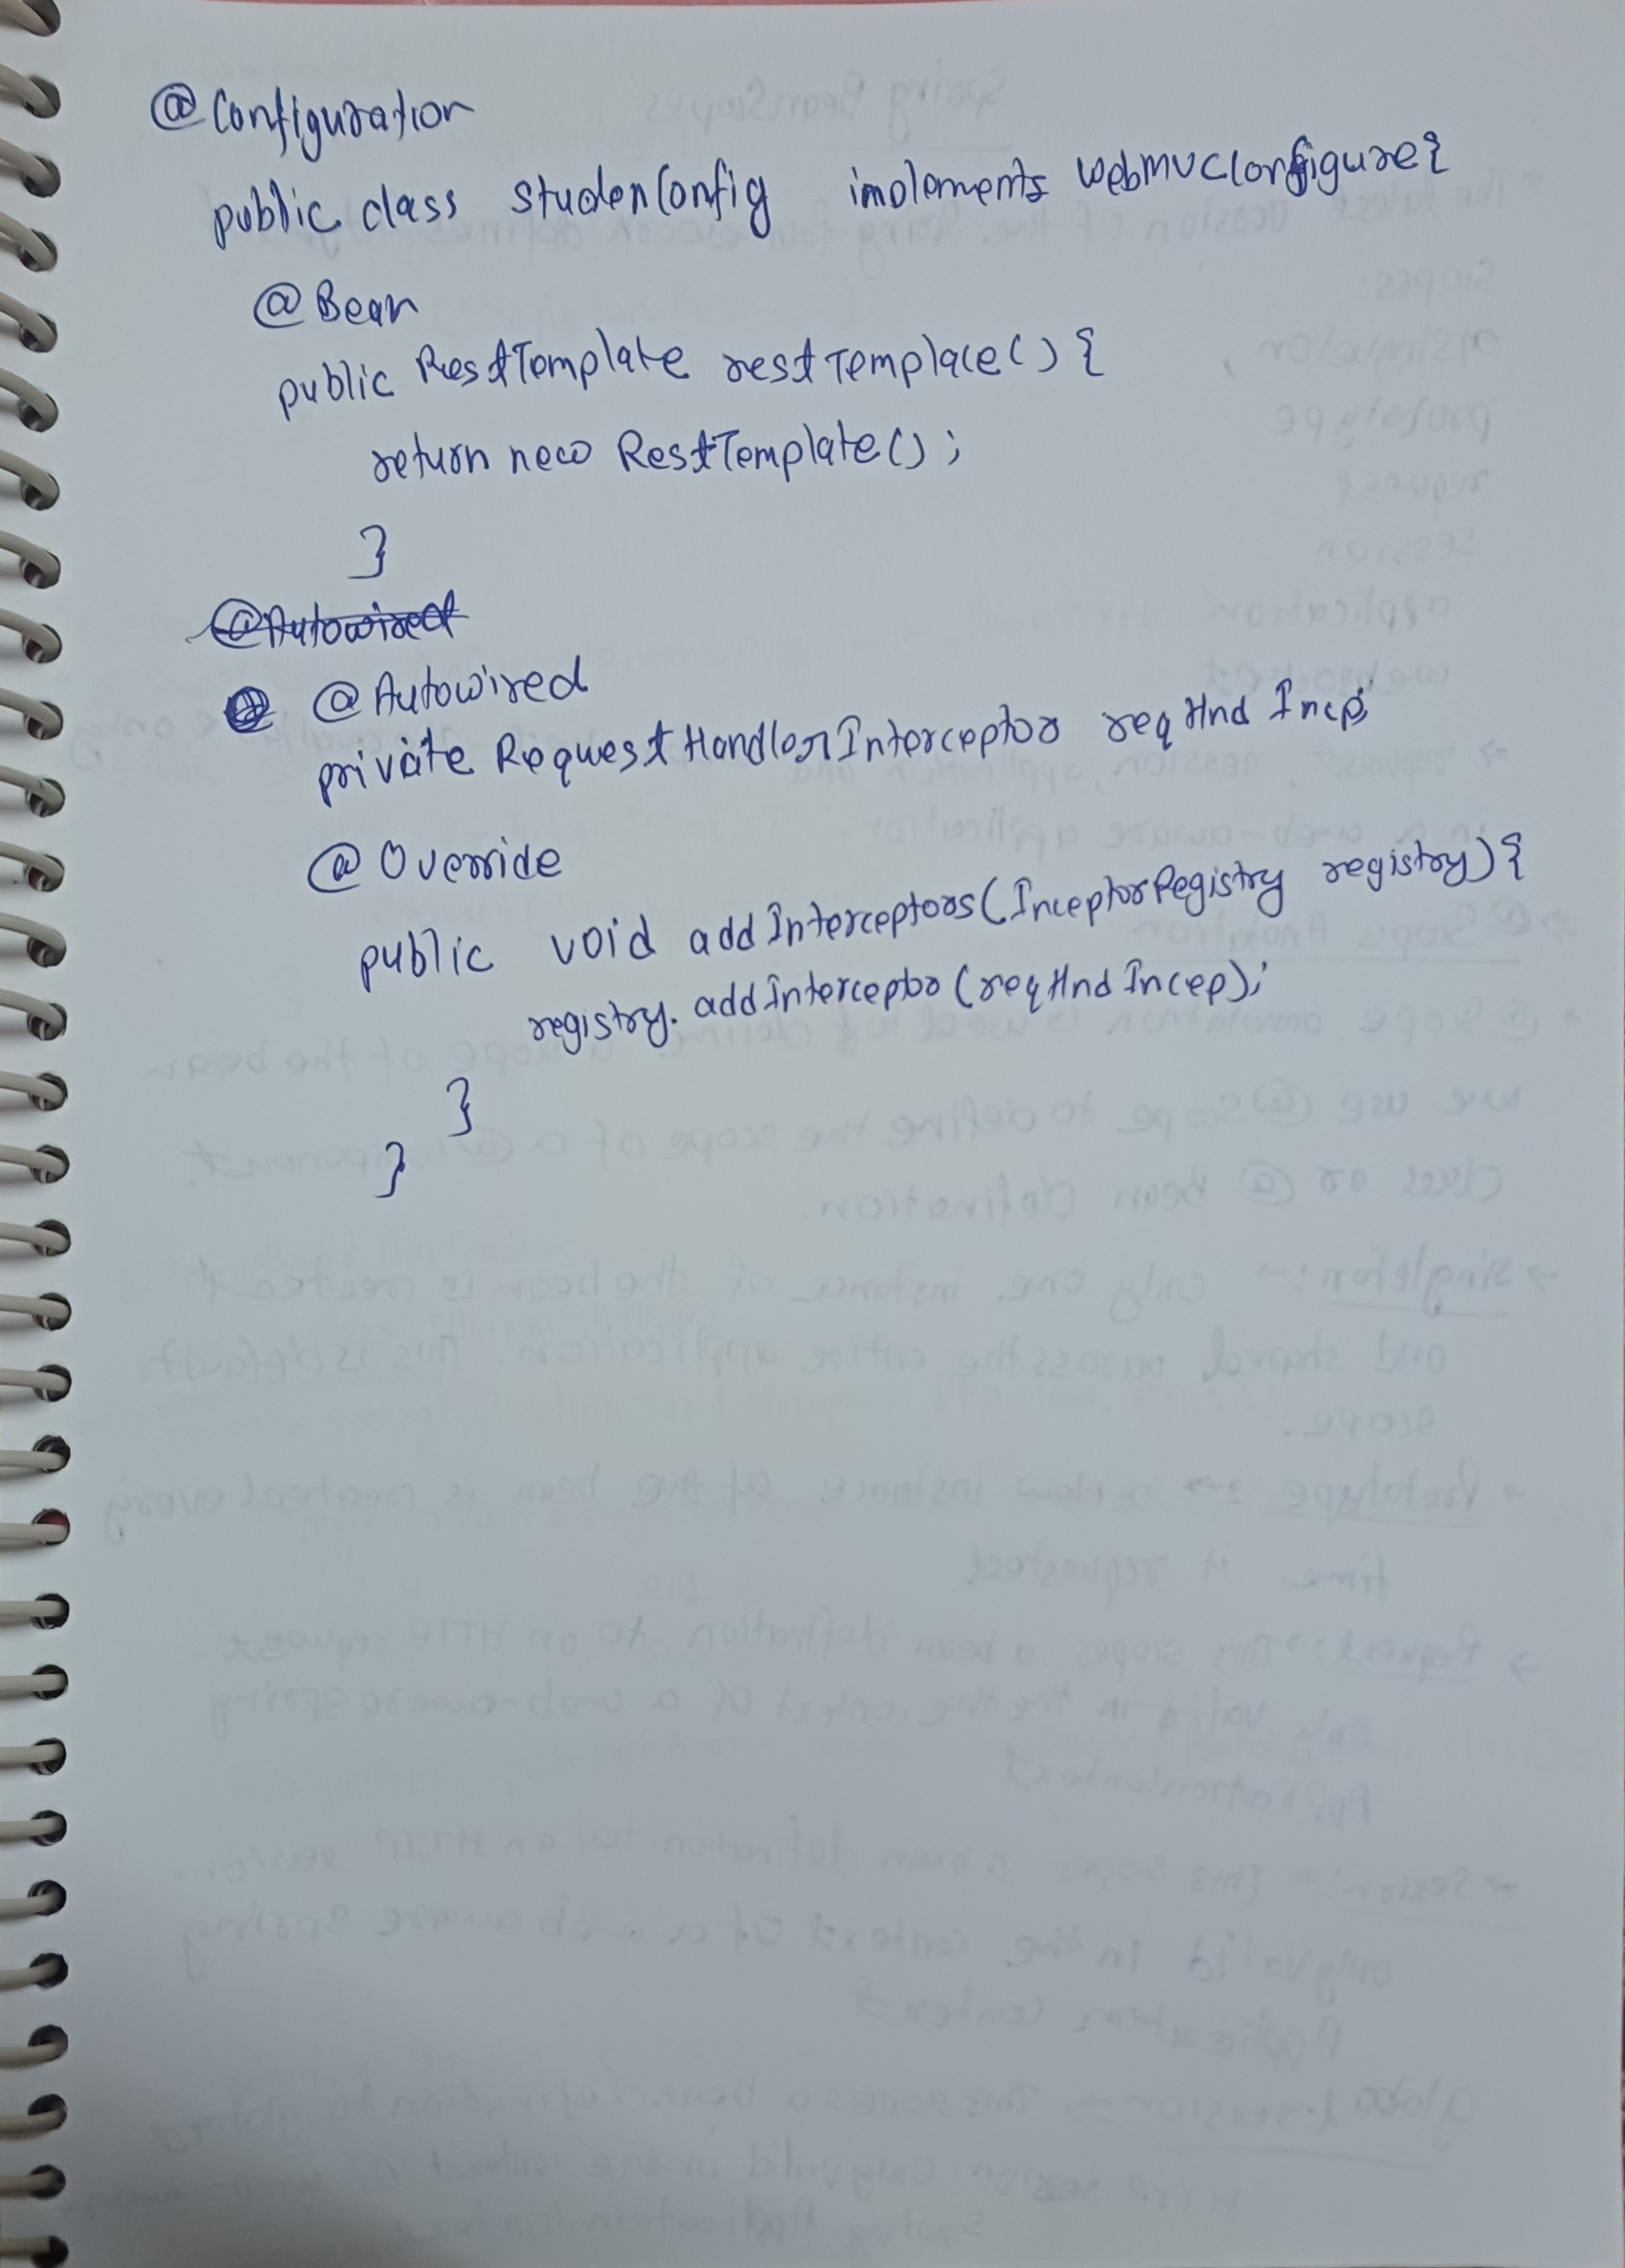 @Configuration
public class StudenConfig implements WebMVCConfigure{
@Bean
public RestTemplate restTemplate() {
return new RestTemplate();
}
@Autowired
@Autowired
private RequestHandlerInterceptor reqHndIncp;
@Override
public void addInterceptors(InceptorRegistry registry) {
registry.addInterceptor(reqHndIncep);
}
}